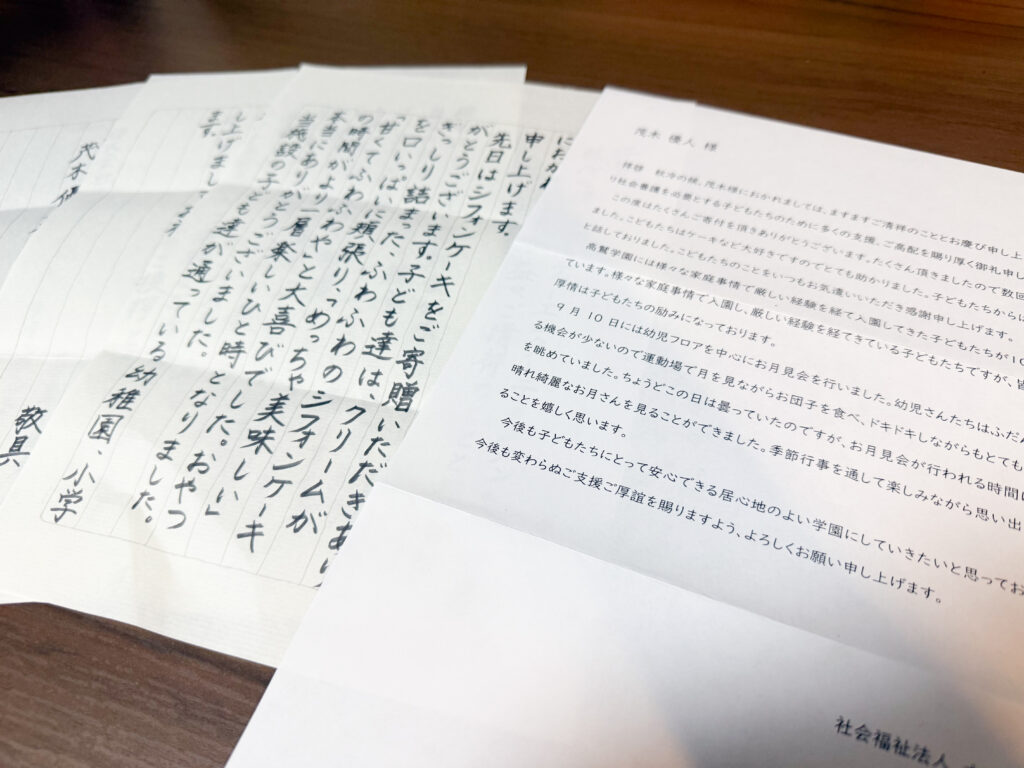 茂木 優人 様
拝啓 秋冷の候、茂木様におかれましては、ますますご清祥のこととお慶び申し上
り社会養護を必要とする子どもたちのために多くの支援、ご高配を賜り厚く御礼申し
この度はたくさんご寄付を頂きありがとうございます。たくさん頂きましたので数回
ました。こどもたちはケーキなど大好きですのでとても助かりました。子どもたちからは
と話しておりました。こどもたちのことをいつもお気遣いいただき感謝申し上げます。
高鷲学園には様々な家庭事情で厳しい経験を経て入園してきた子どもたちが10
ています。様々な家庭事情で入園し、厳しい経験を経てきている子どもたちですが、皆
厚情は子どもたちの励みになっております。
9月10日には幼児フロアを中心にお月見会を行いました。幼児さんたちはふだん
る機会が少ないので運動場で月を見ながらお団子を食べ、ドキドキしながらもとても
を眺めていました。ちょうどこの日は曇っていたのですが、お月見会が行われる時間に
晴れ綺麗なお月さんを見ることができました。季節行事を通して楽しみながら思い出
ることを嬉しく思います。
今後も子どもたちにとって安心できる居心地のよい学園にしていきたいと思ってお
今後も変わらぬご支援ご厚誼を賜りますよう、よろしくお願い申し上げます。
社会福祉法人
におかれ
申し上げます。
先日はシフォンケーキをご寄贈いただきあり
がとうございます。子ども達は、クリームが
ぎっしり詰まった、ふわふわのシフォンケーキ
を口いっぱいに頬張り、「めっちゃ美味しい」
「甘くてふわふわや」と大喜びでした。おやつ
の時間がより一層楽しいひと時となりました。
本当にありがとうございました。
当施設の子ども達が通っている幼稚園、小学
し上げまして
ます。
敬具
茂木